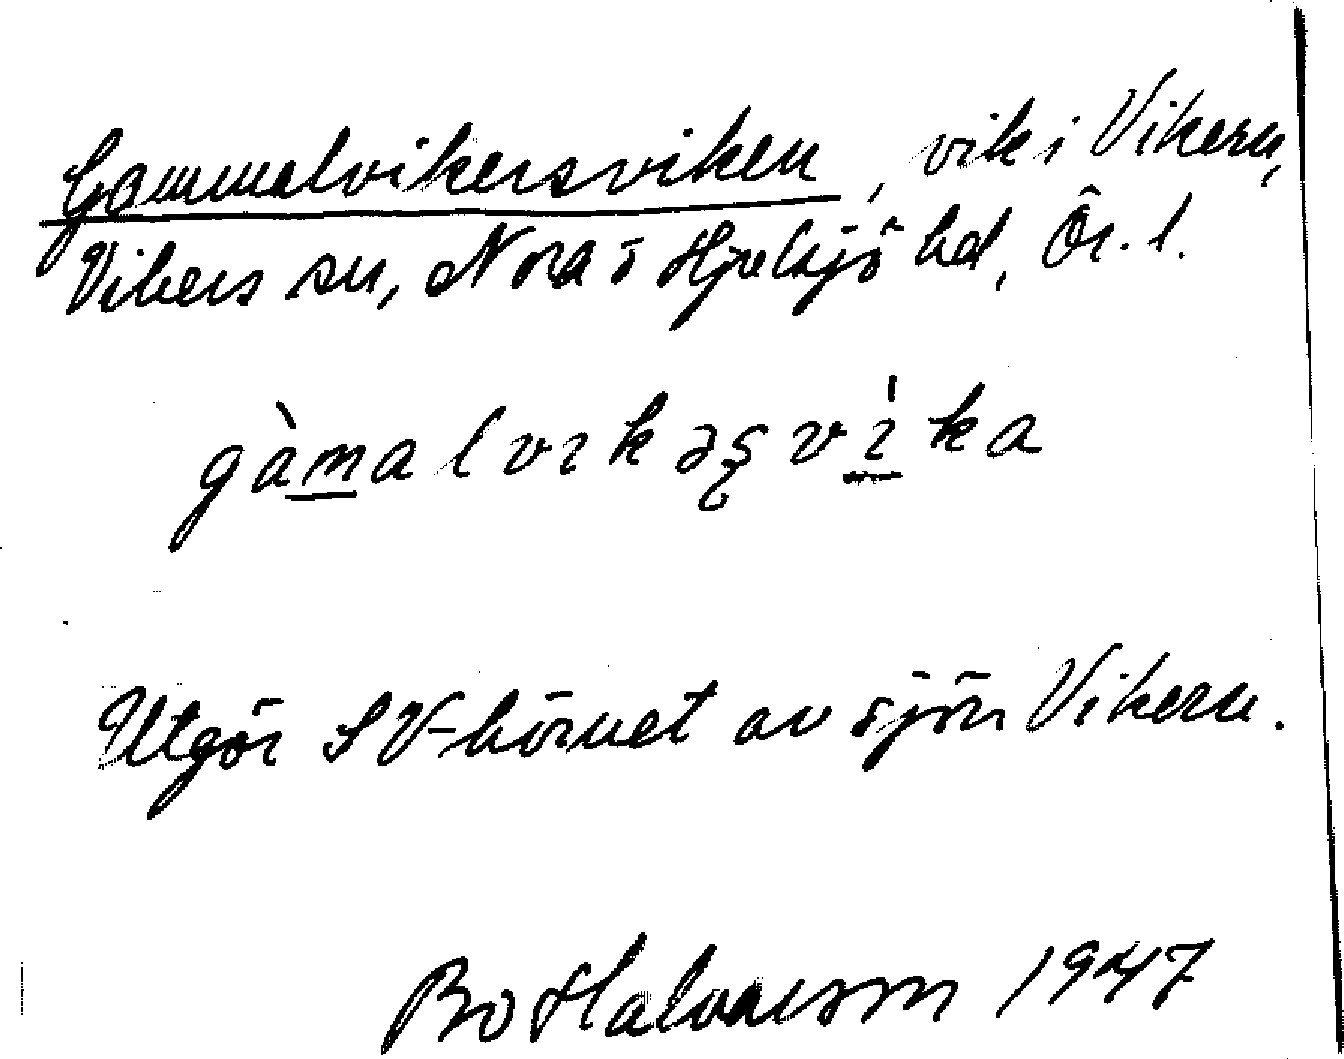 Gammelvikersviken, vik i Vikern,
Vikers sn, Nora o Hjulsjö hd, Ör. l.
gàmalvıkəʂvı̀ka
Utgör SV-hörnet av sjön Vikern.
Bo Halvarson 1947